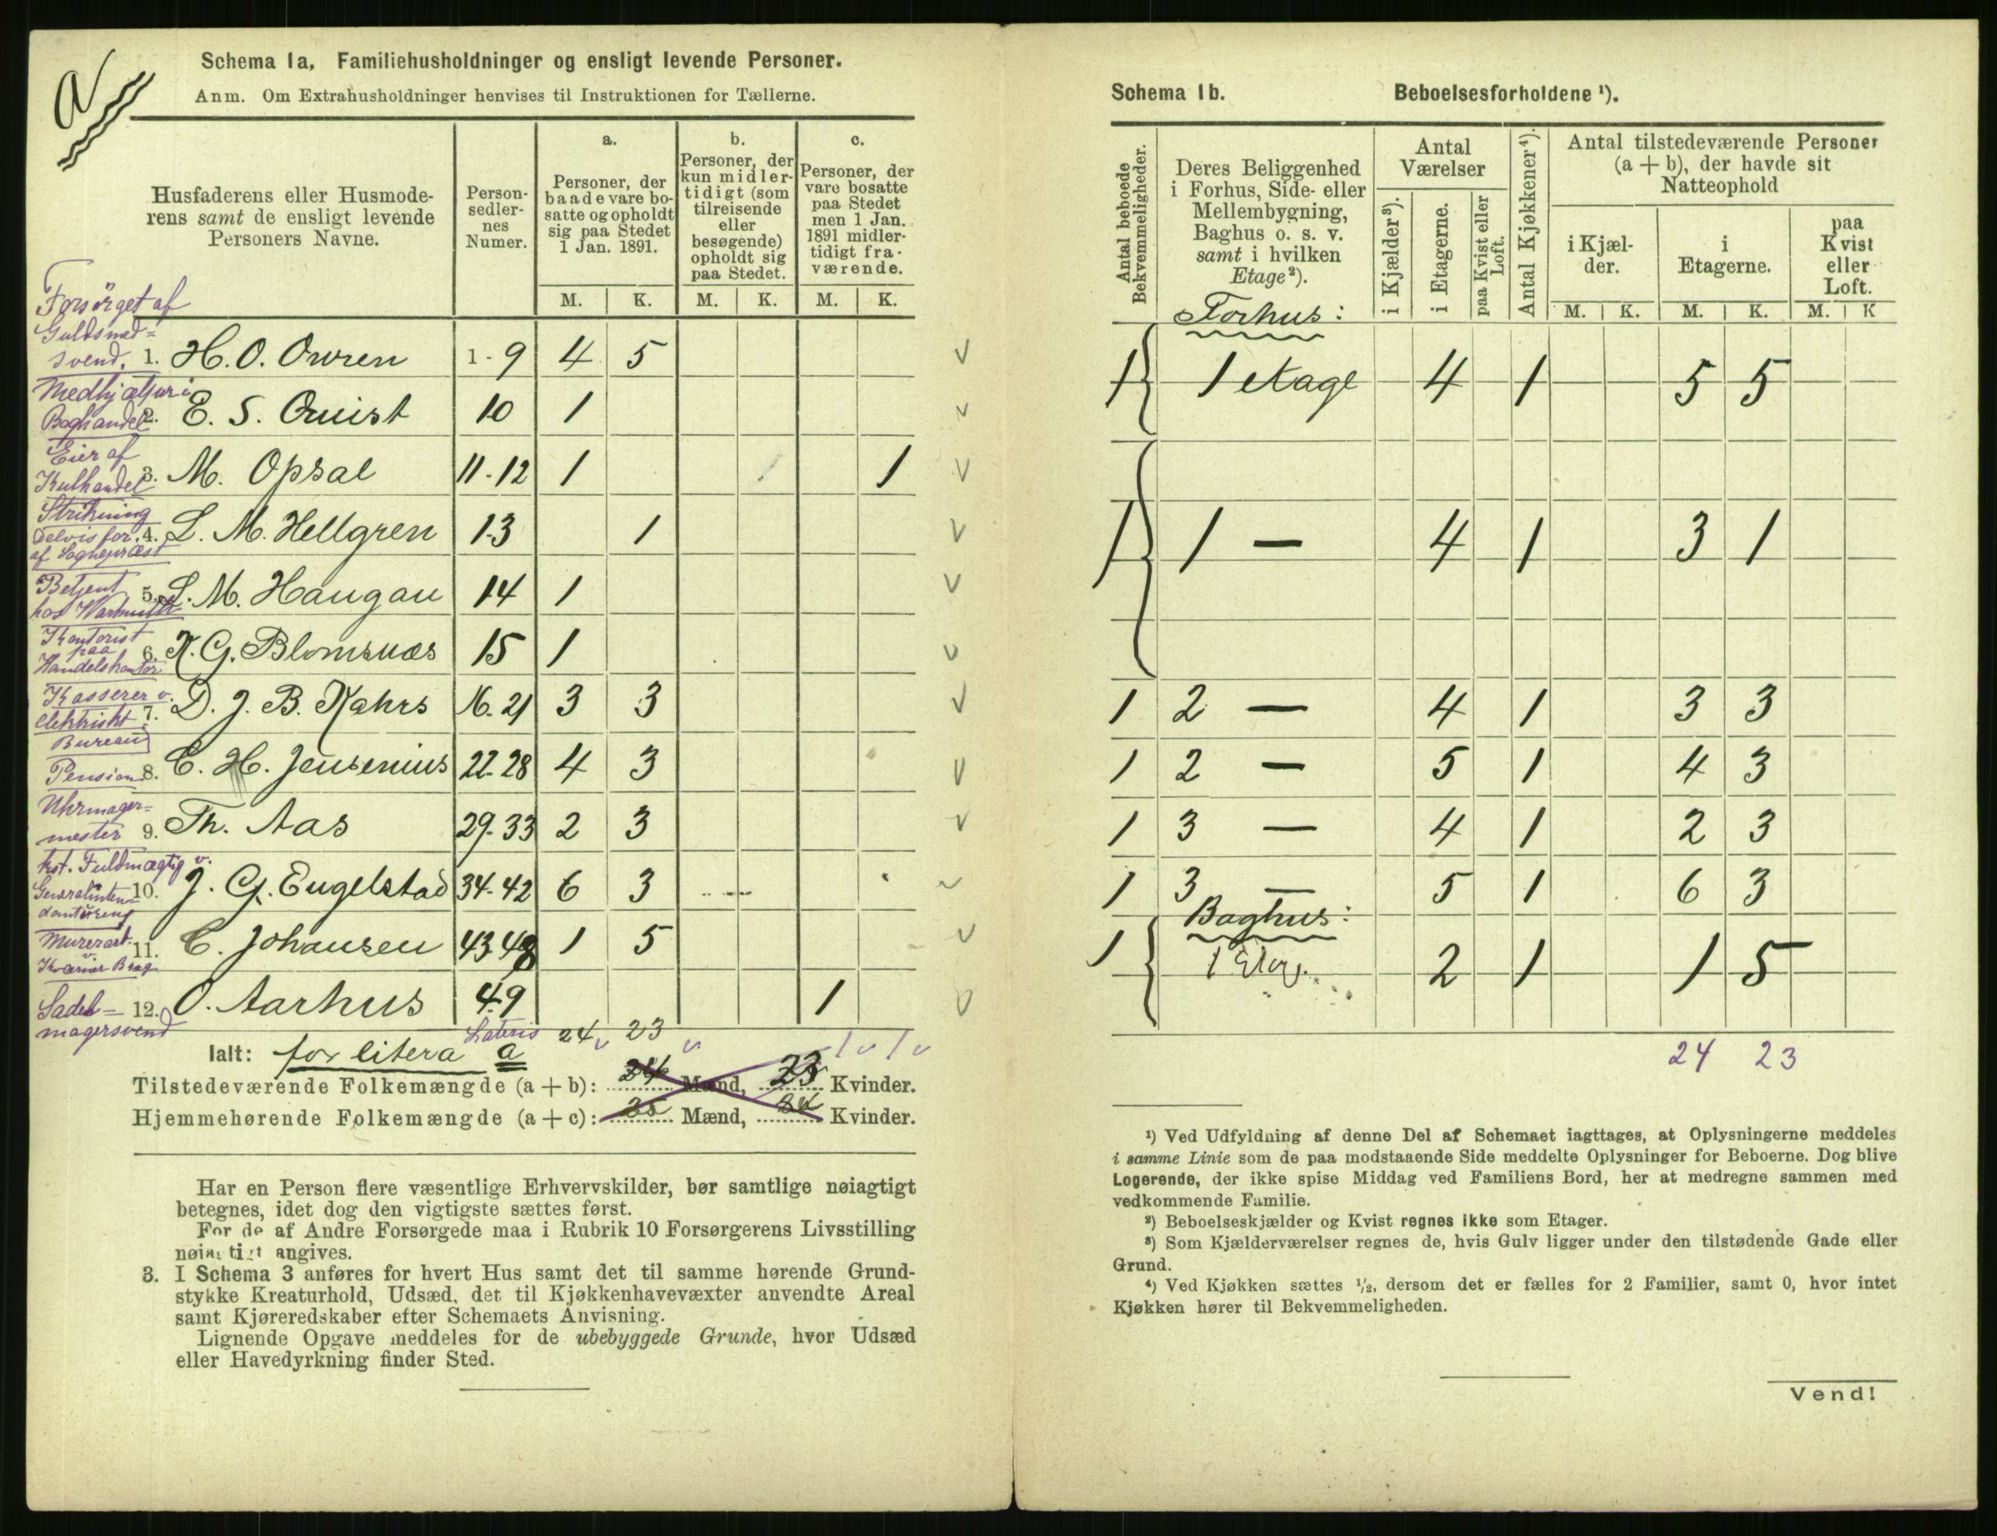 a
Schema 1a, Familiehusholdninger og ensligt levende Personer.
Anm. Om Extrahusholdninger henvises til Instruktionen for Tællerne.
Husfaderens eller Husmode-
rens samt de ensligt levende
Personers Navne.
Person-
sedler-
nes
Numer.
a.
Personer, der
baade vare bo-
satte og opholdt
sig paa Stedet
1 Jan. 1891.
b.
Personer, der
kun midler-
tidigt (som
tilreisende
eller
besøgende)
opholdt sig
paa Stedet.
c.
Personer, der
vare bosatte
paa Stedet
men 1 Jan.
1891 midler-
tidigt fra-
værende.
M. K. M. K. M. K.
Forsörget af
Guldsmed=
svend. 1. H. O. Owren 1 - 9 4 5
Medhjælper i
Baghandel 2. E. S. Quist 10 1
Eier af
Kulhandel 3. M. Opsal 11-12 1 1
Strikning
Delvis for.
af Sognepræst 4. L. M. Hellgren 13 1
Betjent
hos Warmuth 5. L. M. Haugan 14 1
Kontorist
paa
Handelskontor 6. K. G. Blomsnæs 15 1
Kasserer v.
elektriskt
Bureau 7. D. J. B. Kahrs 16-21 3 3
Pension 8. C. H. Jensenius 22-28 4 3
Uhrmager=
mester 9. Th. Aas 29-33 2 3
kst. Fuldmægtig v.
Generalinten=
dantureng 10. J. G. Engelstad 34-42 6 3
Murerarb.
v.
Kværner Brug 11. C. Johansen 43-48 1 5
Sadel=
magersvend 12. O. Aarhus 49 1
Lateris 24 23
Ialt: for litera a 1 1
Tilstedeværende Folkemængde (a + b): 24 Mænd, 23 Kvinder.
Hjemmehørende Folkemængde (a + c): 25 Mænd, 24 Kvinder.
Har en Person flere væsentlige Erhvervskilder, bør samtlige nøiagtigt
betegnes, idet dog den vigtigste sættes først.
For de af Andre Forsørgede maa i Rubrik 10 Forsørgerens Livsstilling
nøiagtigt angives.
3. I Schema 3 anføres for hvert Hus samt det til samme hørende Grund-
stykke Kreaturhold, Udsæd, det til Kjøkkenhavevæxter anvendte Areal
samt Kjøreredskaber efter Schemaets Anvisning.
Lignende Opgave meddeles for de ubebyggede Grunde, hvor Udsæd
eller Havedyrkning finder Sted.
Schema 1b. Beboelsesforholdene ¹).
Antal beboede
Bekvemmeligheder.
Deres Beliggenhed
i Forhus, Side- eller
Mellembygning,
Baghus o. s. v.
samt i hvilken
Etage²).
Antal
Værelser
i Kjælder³).
i Etagerne.
paa Kvist eller
Loft.
Antal Kjøkkener⁴).
Antal tilstedeværende Personer
(a + b), der havde sit
Natteophold
i Kjæl-
der.
i
Etagerne.
paa
Kvist
eller
Loft.
M. K. M. K. M. K
Forhus:
1 1 etage 4 1 5 5
1 1 — 4 1 3 1
1 2 — 4 1 3 3
1 2 — 5 1 4 3
1 3 — 4 1 2 3
1 3 — 5 1 6 3
Baghus:
1 1 Etag. 2 1 1 5
24 23
¹) Ved Udfyldning af denne Del af Schemaet iagttages, at Oplysningerne meddeles
i samme Linie som de paa modstaaende Side meddelte Oplysninger for Beboerne. Dog blive
Logerende, der ikke spise Middag ved Familiens Bord, her at medregne sammen med
vedkommende Familie.
²) Beboelseskjælder og Kvist regnes ikke som Etager.
³) Som Kjælderværelser regnes de, hvis Gulv ligger under den tilstødende Gade eller
Grund.
⁴) Ved Kjøkken sættes ½, dersom det er fælles for 2 Familier, samt 0, hvor intet
Kjøkken hører til Bekvemmeligheden.
Vend!